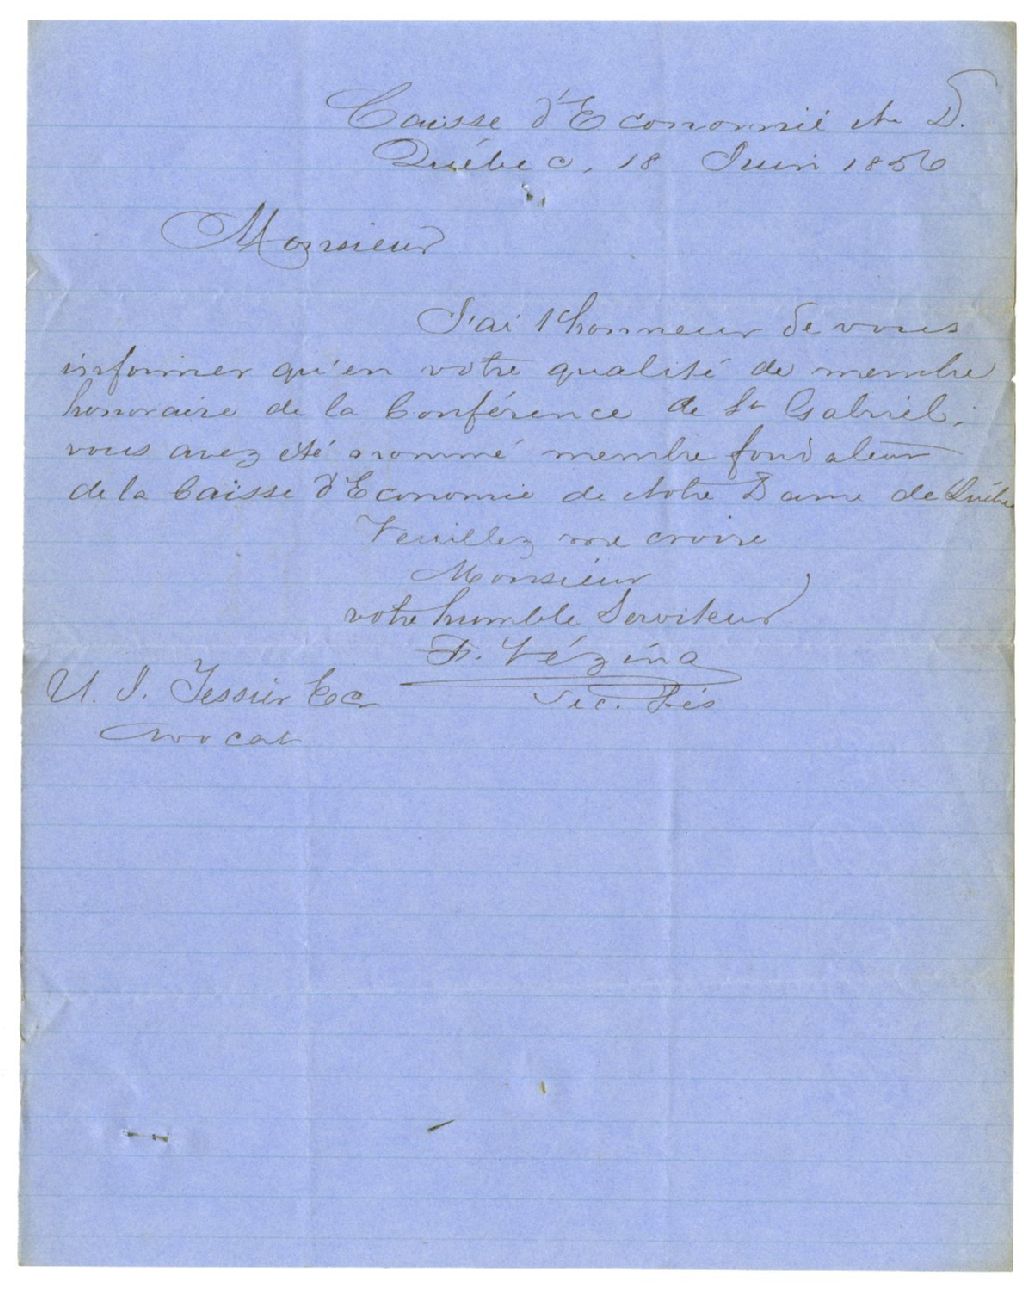 Caisse d'Economie N. D.
Québec, 18 Juin 1856
Monsieur
J'ai l'honneur de vous
informer qu'en votre qualité de membre
honoraire de la Conférence de St Gabriel,
vous avez été nommé membre fondateur
de la Caisse d'Economie de Notre Dame de Québec
Veuillez me croire
Monsieur
votre humble Serviteur
F. Vézina
Sec. Trés
U. J. Tessier Ec
Avocat